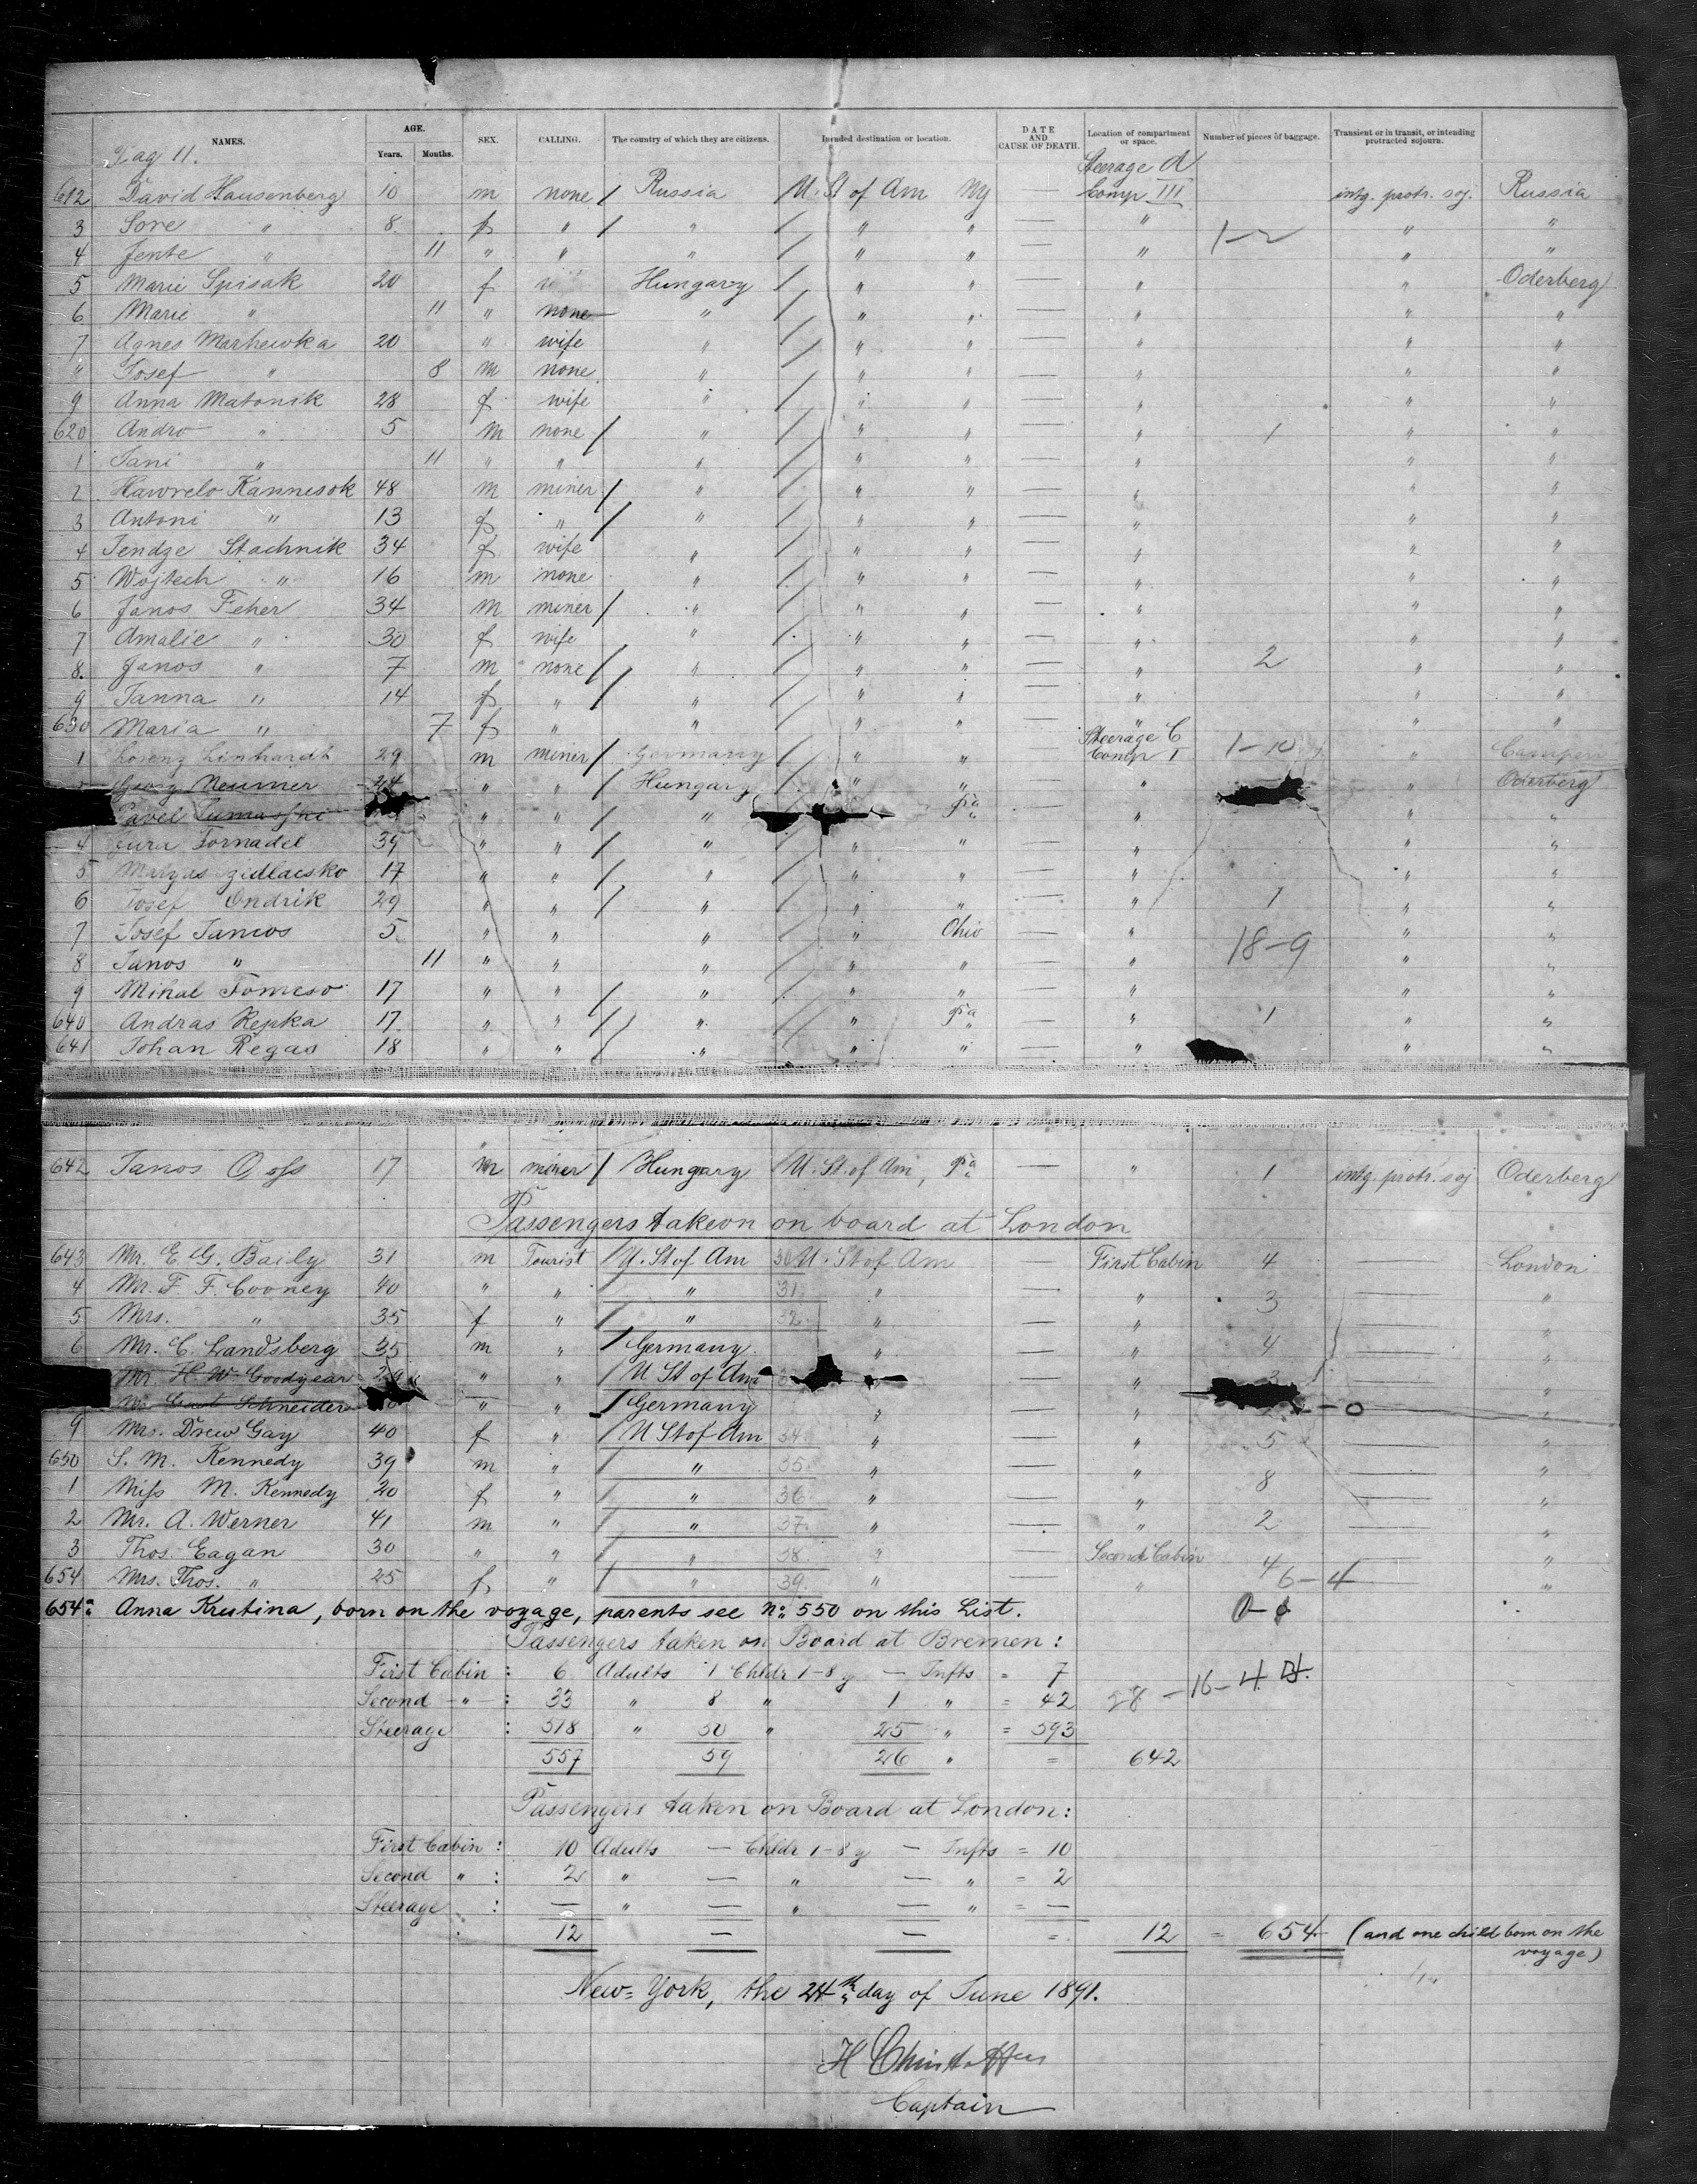 NAMES. AGE. Years. Months. SEX. CALLING. The country of which they are citizens. Intended destination or location. DATE AND CAUSE OF DEATH. Location of compartment or space. Number of pieces of baggage. Transient or in transit, or intending protracted sojourn.
Pag 11. Steerage A
612 David Hausenberg 10 m none / Russia U. St of Am NY — Comp III intg. protr. soj. Russia
3 Sore " 8 f " / " / " " — " 1-2 " "
4 Jente " 11 " " " / " " — " " "
5 Marie Spisak 20 f Hungary / " " — " " Oderberg
6 Marie " 11 " none " / " " — " " "
7 Agnes Marhewka 20 " wife " / " " — " " "
" Josef " 8 m none " / " " — " " "
9 Anna Matonik 28 f wife " / " " — " " "
620 Andro " 5 m none / " / " " — " 1 " "
1 Jani " 11 " " " / " " — " " "
2 Hawrelo Kannesok 48 m miner / " / " " — " " "
3 Antoni " 13 f " / " / " " — " " "
4 Jendze Stachnik 34 f wife " / " " — " " "
5 Wojtech " 16 m none " / " " — " " "
6 Janos Feher 34 m miner / " / " " — " " "
7 Amalie " 30 f wife " / " " — " " "
8. Janos " 7 m none / " / " " — " 2 " "
9 Janna " 14 f " / " / " " — " " "
630 Maria " 7 f " " / " " — " " "
Steerage C
1 Lorenz Linhardt 29 m miner / Germany / " " Comp I 1-10 "
Georg Neumer 24 " " / Hungary / " " — " " Oderberg
Pavel " " / " Pa — " " "
4 Jura Tornadel 39 " " / " / " " — " " "
5 Matyas Zidlacsko 17 " " / " / " " — " " "
6 Josef Ondrik 29 " " / " / " " — " 1 " "
7 Josef Jancos 5 " " " / " Ohio — " " "
8 Janos " 11 " " " / " " — " 18-9 " "
9 Mihal Tomcso 17 " " / " / " " — " " "
640 Andras Repka 17 " " / " / " Pa — " 1 " "
641 Johan Regas 18 " " / " / " " — " " "
642 Janos Oss 17 m miner / Hungary / U. St. of Am, Pa — " 1 intg. protr. soj Oderberg
Passengers takeon on board at London
643 Mr. E. G. Baily 31 m Tourist / U. St of Am 30 U. St of Am — First Cabin 4 — London
4 Mr. F. F. Cooney 40 " " / " 31 " — " 3 — "
5 Mrs. " 35 f " / " 32 " — " — "
6 Mr. C. Landsberg 35 m " / Germany " — " 4 — "
Mr. H. W. Goodyear 29 " " / U St of Am — " 3 — "
Mr. Schneider " " / Germany " — " — "
9 Mrs. Drew Gay 40 f " / U St of Am 34 " — " 5 — "
650 S. M. Kennedy 39 m " / " 35. " — " 8 — "
1 Miss M. Kennedy 20 f " / " 36 " — " — "
2 Mr. A. Werner 41 m " / " 37. " — " 2 — "
3 Thos. Eagan 30 " " / " 38. " — Second Cabin 4 — "
654 Mrs. Thos. " 25 f " / " 39. " — " 6-4 — "
654a Anna Krutina, born on the voyage, parents see No. 550 on this List.
Passengers taken on Board at Bremen:
First Cabin : 6 Adults 1 Chldr 1-8 y — Infts = 7
Second -"- : 33 " 8 " 1 " = 42 28 - 16 - 4
Steerage : 518 " 50 " 25 " = 593
557 59 26 " = 642
Passengers taken on Board at London:
First Cabin : 10 Adults — Chldr 1-8 y — Infts = 10
Second " : 2 " — " — " = 2
Steerage : — " — " — " = —
12 — — = 12 = 654 (and one child born on the voyage)
New-York, the 24th day of June 1891.
H Christoffers
Captain